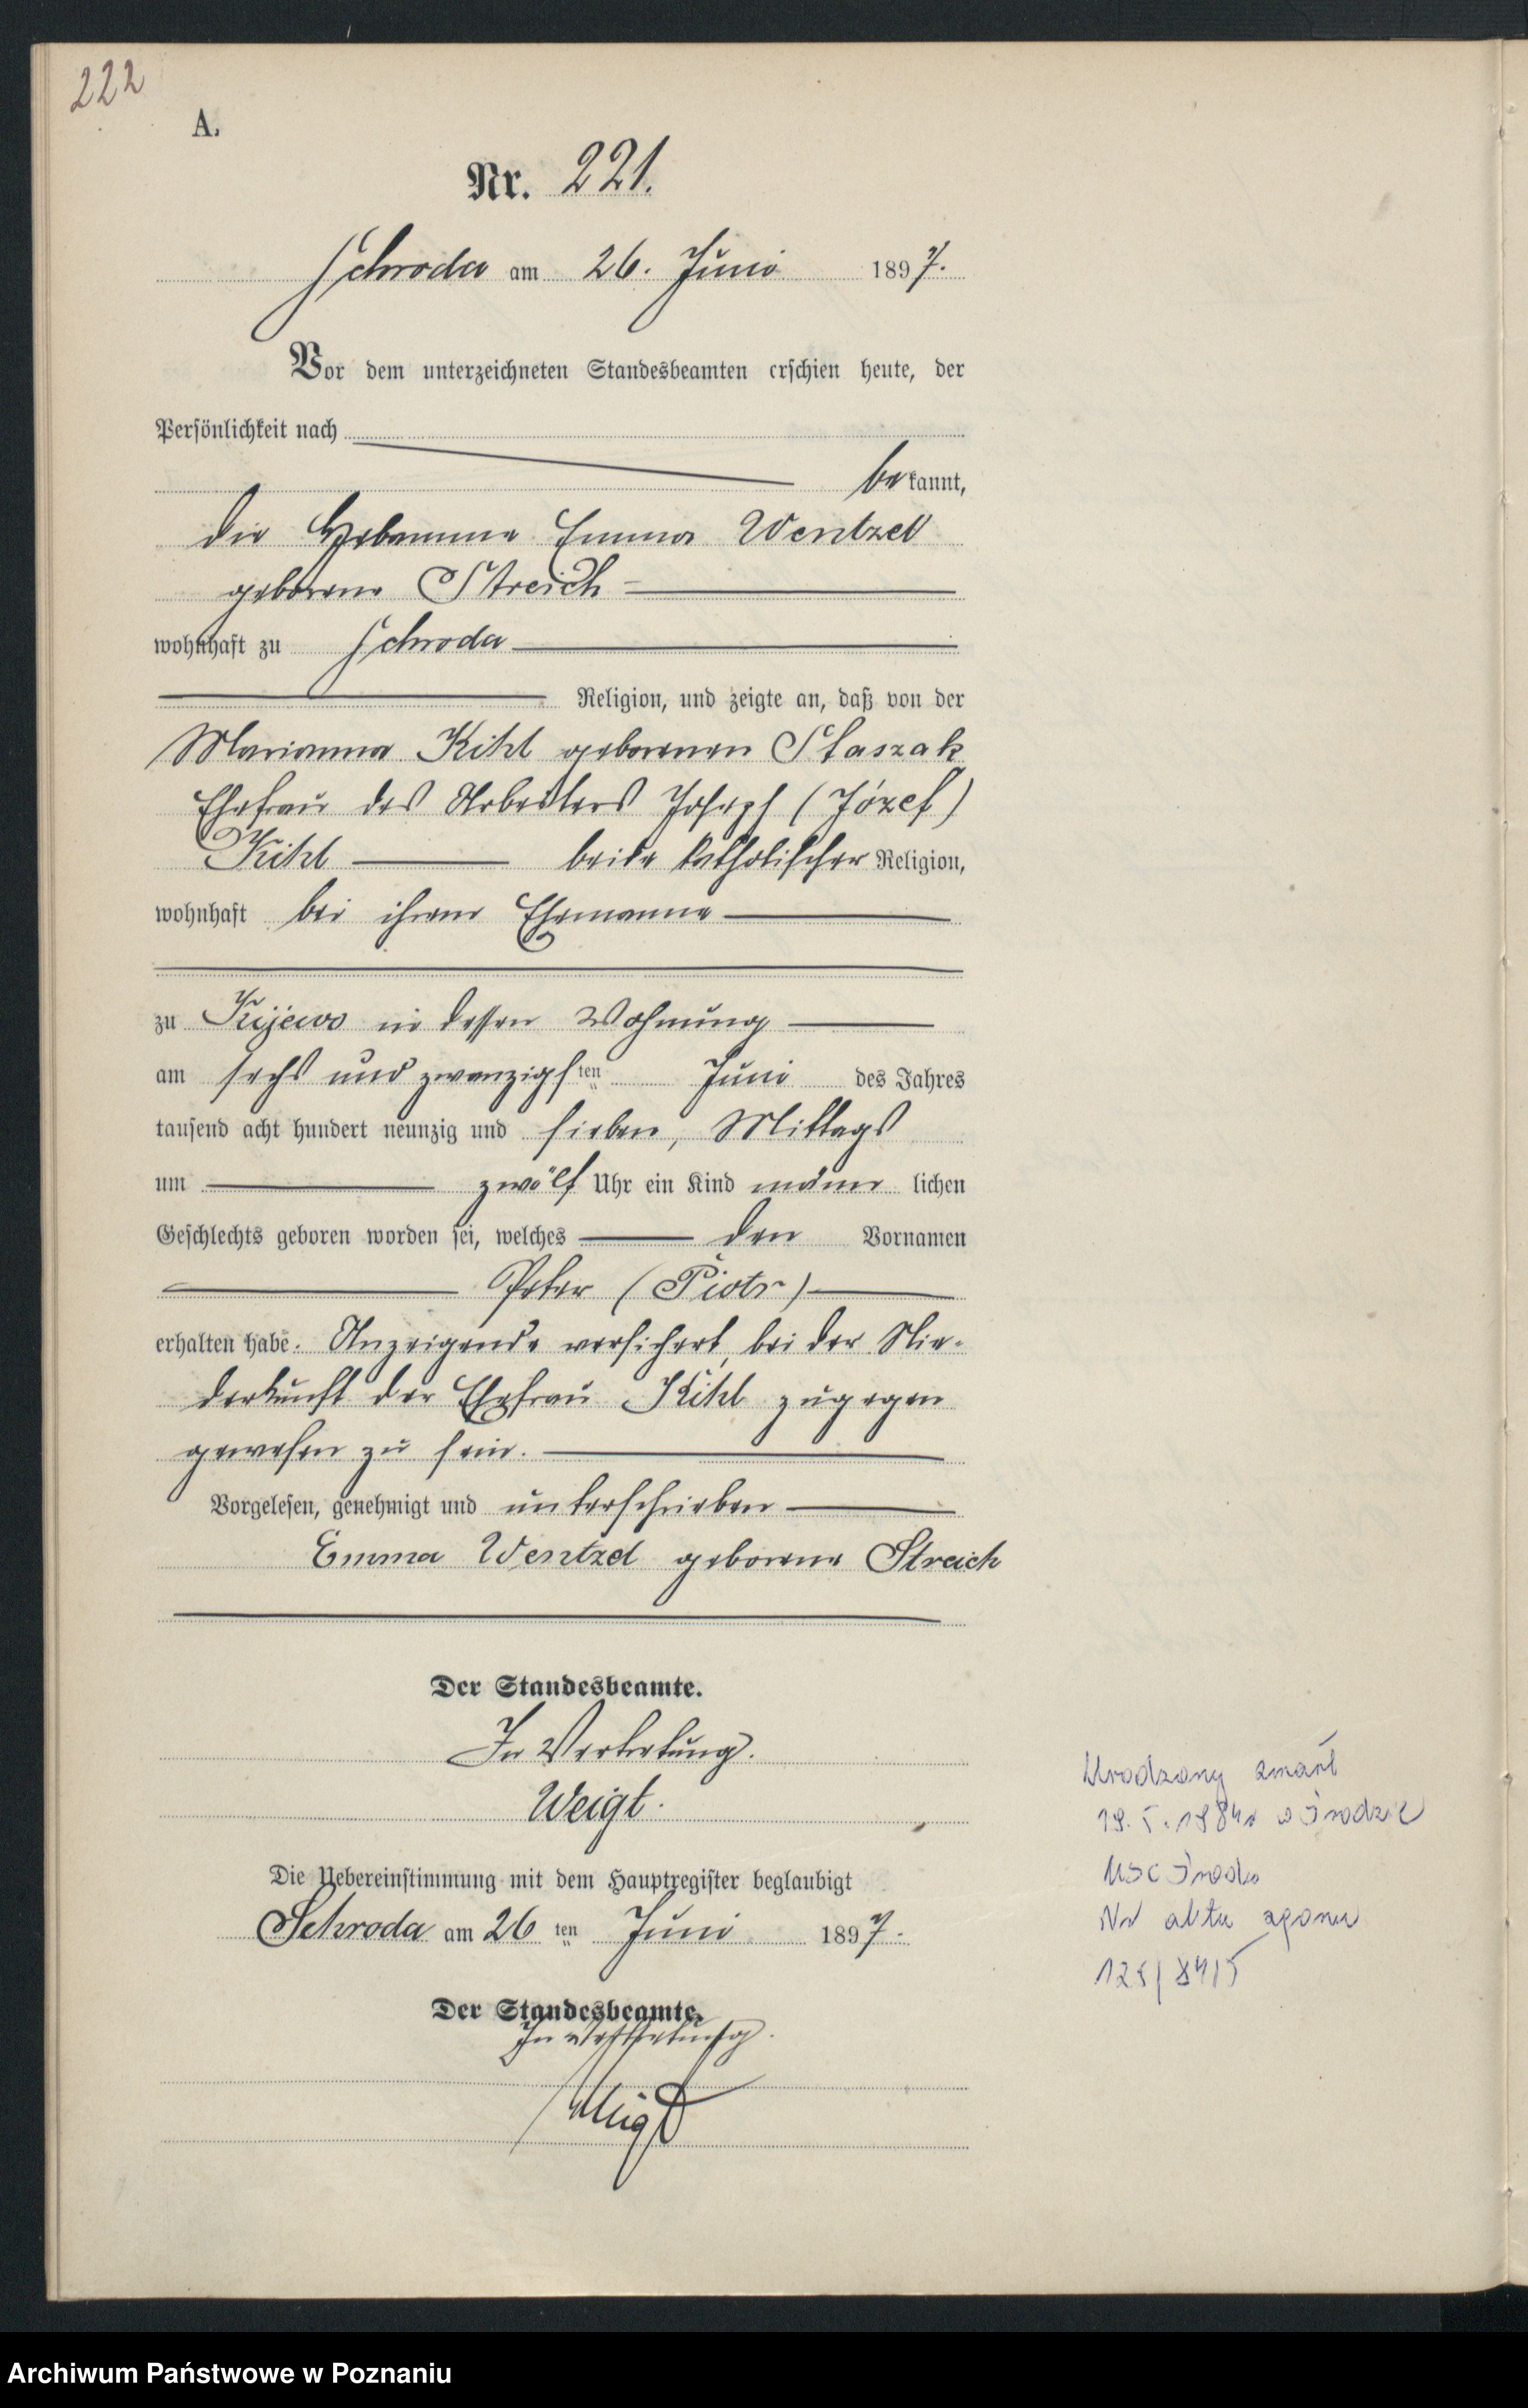 222
A.
Nr. 221.
Schroda am 26. Juni 1897.
Vor dem unterzeichneten Standesbeamten erschien heute, der
Persönlichkeit nach
bekannt,
die Hebamme Emma Wentzel
geborene Streich
wohnhaft zu Schroda
Religion, und zeigte an, daß von der
Marianna Kihl geborenen Staszak
Ehefrau des Arbeiters Joseph (Józef)
Kihl beide katholischer Religion,
wohnhaft bei ihrem Ehemanne
zu Kijewo in dessen Wohnung
am sechs und zwanzigsten Juni des Jahres
tausend acht hundert neunzig und sieben, Mittags
um zwölf Uhr ein Kind männlichen
Geschlechts geboren worden sei, welches den Vornamen
Peter (Piotr)
erhalten habe. Anzeigende versichert, bei der Nie-
derkunft der Ehefrau Kihl zugegen
gewesen zu sein.
Vorgelesen, genehmigt und unterschrieben
Emma Wentzel geborene Streich
Der Standesbeamte.
In Vertretung.
Weigt.
Die Uebereinstimmung mit dem Hauptregister beglaubigt
Schroda am 26ten Juni 1897.
Der Standesbeamte.
In Vertretung.
Weigt
Urodzony zmarł
19.5.1984r w Środzie
USC Środa
Nr aktu zgonu
Archiwum Państwowe w Poznaniu